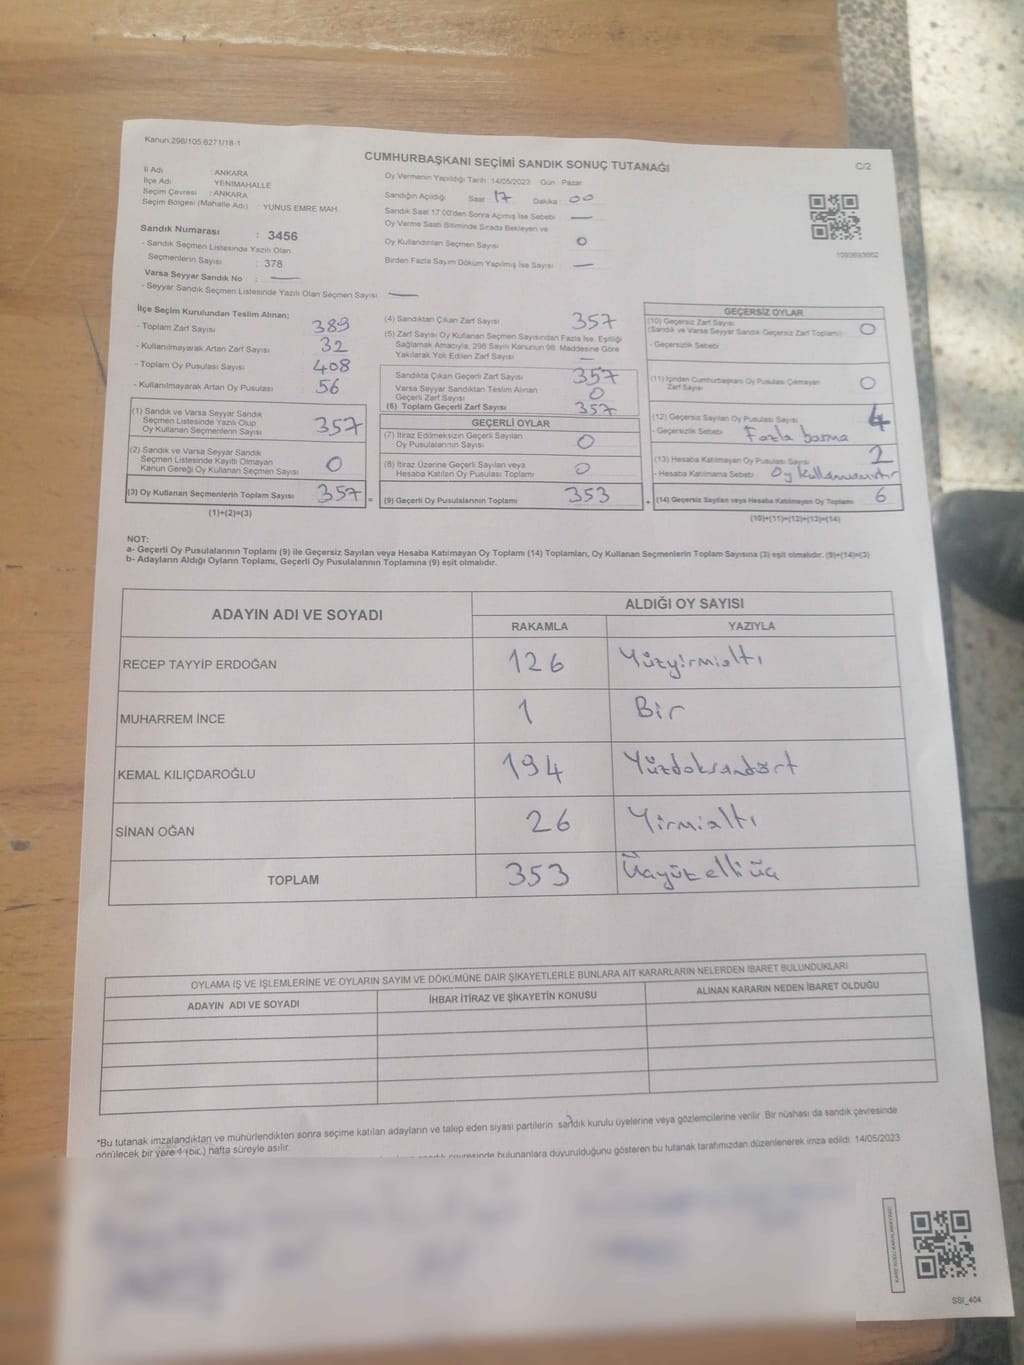 Kanun:298/105;6271/18-1
CUMHURBAŞKANI SEÇİMİ SANDIK SONUÇ TUTANAĞI
C/2
İl Adı : ANKARA
İlçe Adı : YENİMAHALLE
Seçim Çevresi : ANKARA
Seçim Bölgesi (Mahalle Adı) : YUNUS EMRE MAH.
Oy Vermenin Yapıldığı Tarih: 14/05/2023 Gün : Pazar
Sandığın Açıldığı Saat 17 Dakika 00
Sandık Saat 17:00'den Sonra Açılmış İse Sebebi —
Oy Verme Saati Bitiminde Sırada Bekleyen ve
Oy Kullandırılan Seçmen Sayısı 0
Birden Fazla Sayım Döküm Yapılmış İse Sayısı —
Sandık Numarası : 3456
- Sandık Seçmen Listesinde Yazılı Olan
Seçmenlerin Sayısı : 378
Varsa Seyyar Sandık No : —
- Seyyar Sandık Seçmen Listesinde Yazılı Olan Seçmen Sayısı : —
İlçe Seçim Kurulundan Teslim Alınan;
- Toplam Zarf Sayısı 389
- Kullanılmayarak Artan Zarf Sayısı 32
- Toplam Oy Pusulası Sayısı 408
- Kullanılmayarak Artan Oy Pusulası 56
(1) Sandık ve Varsa Seyyar Sandık
Seçmen Listesinde Yazılı Olup
Oy Kullanan Seçmenlerin Sayısı 357
(2) Sandık ve Varsa Seyyar Sandık
Seçmen Listesinde Kayıtlı Olmayan
Kanun Gereği Oy Kullanan Seçmen Sayısı 0
(3) Oy Kullanan Seçmenlerin Toplam Sayısı 357 =
(1)+(2)=(3)
(4) Sandıktan Çıkan Zarf Sayısı 357
(5) Zarf Sayısı Oy Kullanan Seçmen Sayısından Fazla İse, Eşitliği
Sağlamak Amacıyla, 298 Sayılı Kanunun 98. Maddesine Göre
Yakılarak Yok Edilen Zarf Sayısı —
Sandıkta Çıkan Geçerli Zarf Sayısı 357
Varsa Seyyar Sandıktan Teslim Alınan
Geçerli Zarf Sayısı 0
(6) Toplam Geçerli Zarf Sayısı 357
GEÇERLİ OYLAR
(7) İtiraz Edilmeksizin Geçerli Sayılan
Oy Pusulalarının Sayısı 0
(8) İtiraz Üzerine Geçerli Sayılan veya
Hesaba Katılan Oy Pusulası Toplamı 0
(9) Geçerli Oy Pusulalarının Toplamı 353 +
GEÇERSİZ OYLAR
(10) Geçersiz Zarf Sayısı
(Sandık ve Varsa Seyyar Sandık Geçersiz Zarf Toplamı) 0
- Geçersizlik Sebebi
(11) İçinden Cumhurbaşkanı Oy Pusulası Çıkmayan
Zarf Sayısı 0
(12) Geçersiz Sayılan Oy Pusulası Sayısı 4
- Geçersizlik Sebebi Fazla basma
(13) Hesaba Katılmayan Oy Pusulası Sayısı 2
- Hesaba Katılmama Sebebi Oy kullanmamıştır
(14) Geçersiz Sayılan veya Hesaba Katılmayan Oy Toplamı 6
(10)+(11)+(12)+(13)=(14)
NOT:
a- Geçerli Oy Pusulalarının Toplamı (9) ile Geçersiz Sayılan veya Hesaba Katılmayan Oy Toplamı (14) Toplamları, Oy Kullanan Seçmenlerin Toplam Sayısına (3) eşit olmalıdır. (9)+(14)=(3)
b- Adayların Aldığı Oyların Toplamı, Geçerli Oy Pusulalarının Toplamına (9) eşit olmalıdır.
ADAYIN ADI VE SOYADI
ALDIĞI OY SAYISI
RAKAMLA YAZIYLA
RECEP TAYYİP ERDOĞAN 126 Yüzyirmialtı
MUHARREM İNCE 1 Bir
KEMAL KILIÇDAROĞLU 194 Yüzdoksandört
SİNAN OĞAN 26 Yirmialtı
TOPLAM 353 Üçyüzelliüç
OYLAMA İŞ VE İŞLEMLERİNE VE OYLARIN SAYIM VE DÖKÜMÜNE DAİR ŞİKAYETLERLE BUNLARA AİT KARARLARIN NELERDEN İBARET BULUNDUKLARI
ADAYIN ADI VE SOYADI İHBAR İTİRAZ VE ŞİKAYETİN KONUSU ALINAN KARARIN NEDEN İBARET OLDUĞU
*Bu tutanak imzalandıktan ve mühürlendikten sonra seçime katılan adayların ve talep eden siyasi partilerin sandık kurulu üyelerine veya gözlemcilerine verilir. Bir nüshası da sandık çevresinde
görülecek bir yere 1 (bir) hafta süreyle asılır.
sandık çevresinde bulunanlara duyurulduğunu gösteren bu tutanak tarafımızdan düzenlenerek imza edildi. 14/05/2023
SSI_404